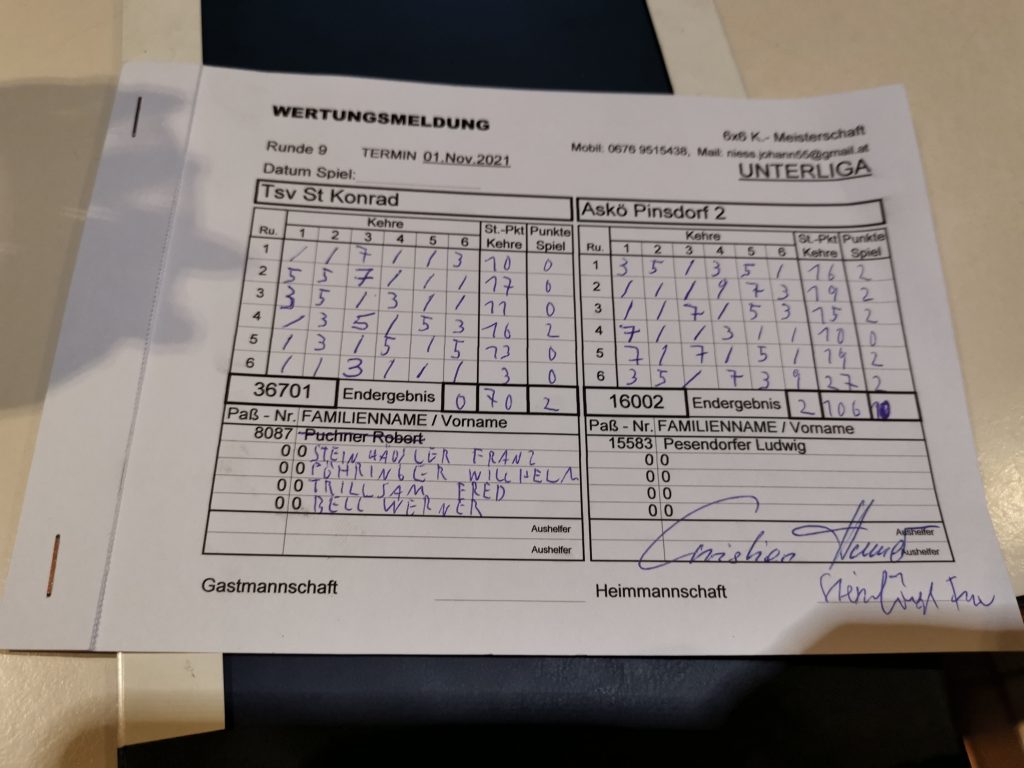 WERTUNGSMELDUNG
6x6 K.- Meisterschaft
Runde 9 TERMIN 01.Nov.2021 Mobil: 0676 9515438, Mail: niess.johann55@gmail.at
Datum Spiel: UNTERLIGA
Tsv St Konrad Askö Pinsdorf 2
Kehre St.-Pkt Punkte Kehre St.-Pkt Punkte
Ru. 1 2 3 4 5 6 Kehre Spiel Ru. 1 2 3 4 5 6 Kehre Spiel
1 / / 7 / / 3 10 0 1 3 5 / 3 5 / 16 2
2 5 5 7 / / / 17 0 2 / / / 9 7 3 19 2
3 3 5 / 3 / / 11 0 3 / / 7 / 5 3 15 2
4 / 3 5 / 5 3 16 2 4 7 / / 3 / / 10 0
5 / 3 / 5 / 5 13 0 5 7 / 7 / 5 / 19 2
6 / / 3 / / / 3 0 6 3 5 / 7 3 9 27 2
36701 Endergebnis 0 70 2 16002 Endergebnis 2 106 10
Paß - Nr. FAMILIENNAME / Vorname Paß - Nr. FAMILIENNAME / Vorname
8087 Puchner Robert 15583 Pesendorfer Ludwig
0 0 STEINHÄUSLER FRANZ 0 0
0 0 PÖHRINGER WILHELM 0 0
0 0 TRILLSAM FRED 0 0
0 0 BELL WERNER 0 0
Aushelfer Aushelfer
Aushelfer Aushelfer
Gastmannschaft Heimmannschaft